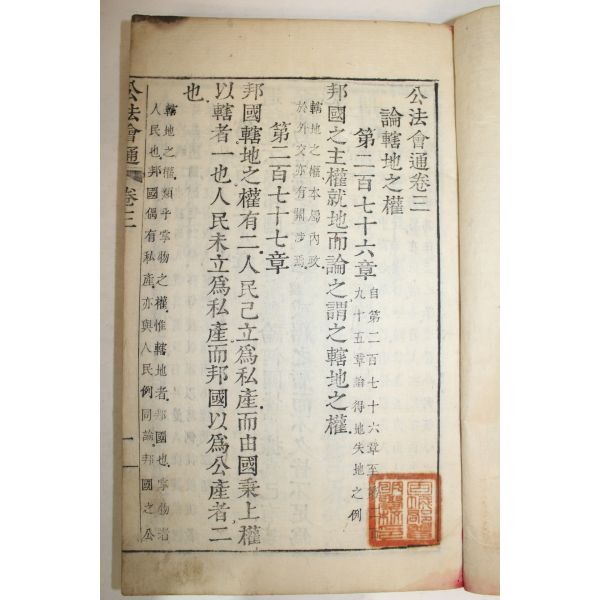 公法會通卷三
論轄地之權
第二百七十六章
自第二百七十六章至第二百
九十五章論得地失地之例
邦國之主權就地而論之謂之轄地之權
轄地之權本屬內政
於外交亦有關涉焉
第二百七十七章
邦國轄地之權有二人民已立爲私產而由國秉上權
以轄者一也人民未立爲私產而邦國以爲公產者二
也
轄地之權類乎掌物之權惟轄地者邦國也掌物者
人民也邦國偶有私產亦與人民例同論邦國之公
公法會通 卷三 一